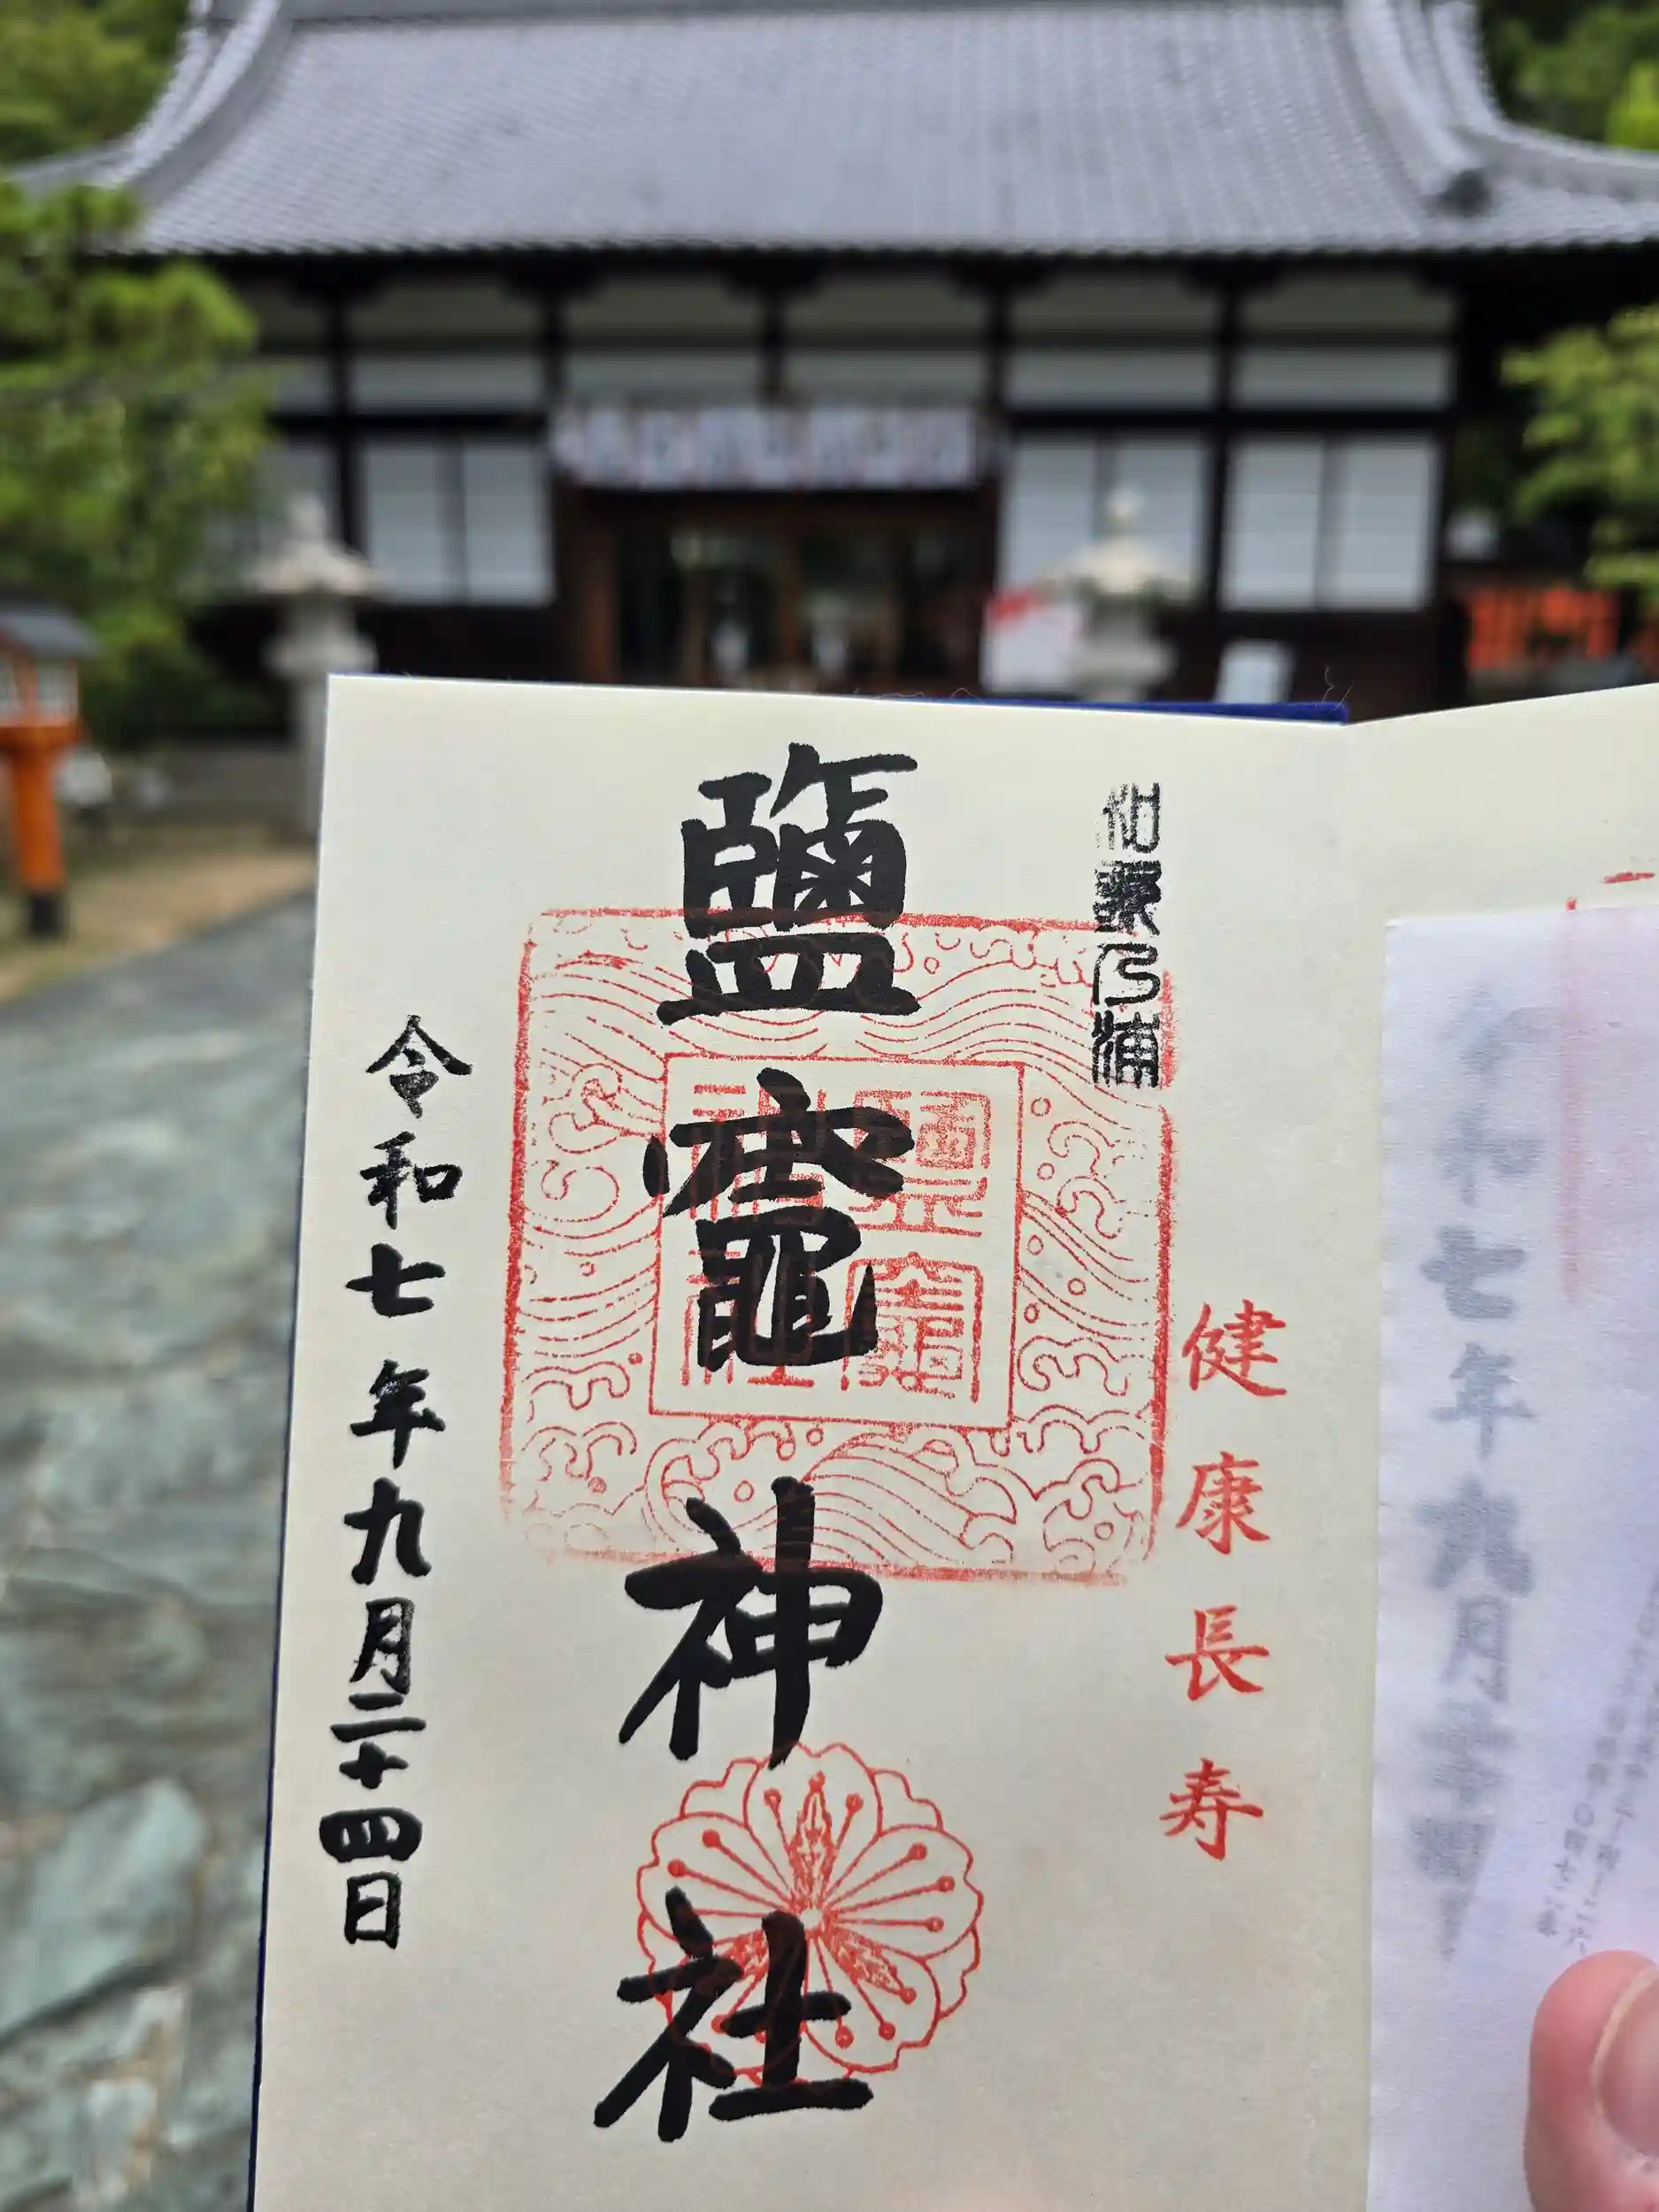 和歌乃浦
健康長寿
鹽竈神社
鹽竈神社
令和七年九月二十四日